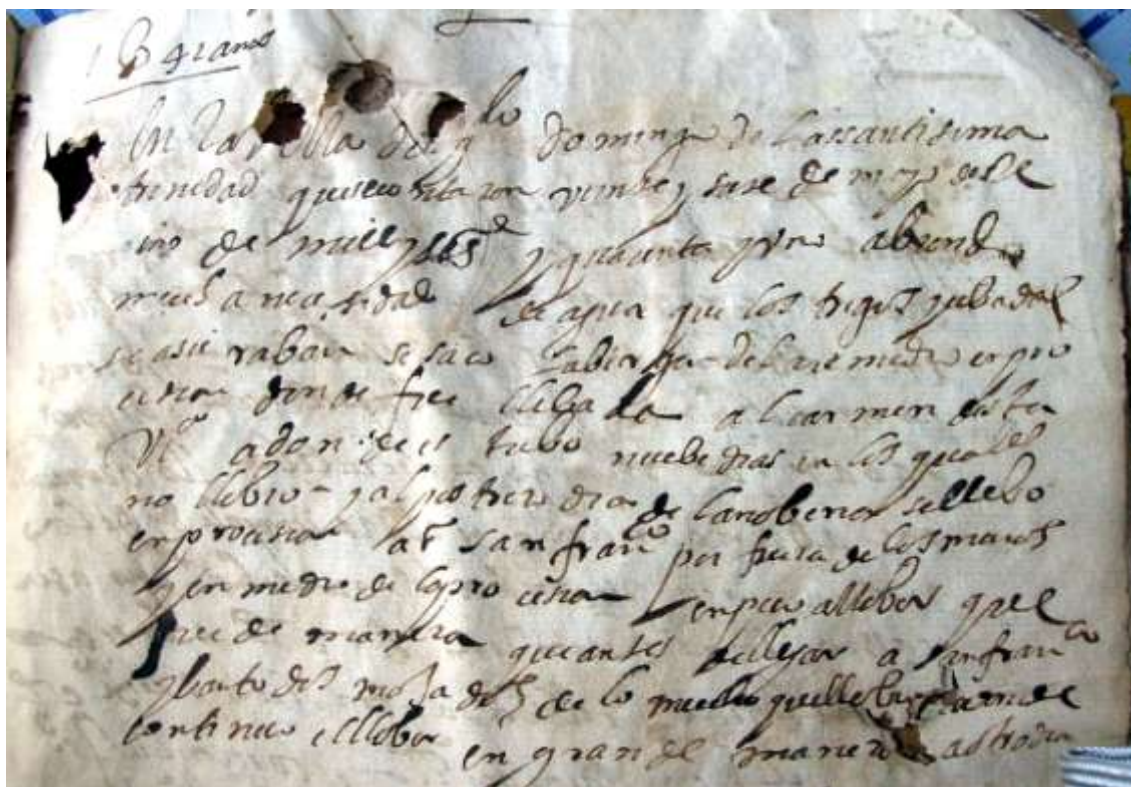 1641 años
En la villa de domingo de la ssantisima
trinidad que se contaron veinte y seis de mayo deste
año de mill y seis y quarenta y uno abiendo
mucha necesidad de agua que los trigos y cebadas
se asuraban se saco la birgen del rremedio en pro
cesion donde fue llebada al carmen desta
Vª adonde es tubo nuebe dias en los quales
no llobio y al postrero dia de la nobena se llebo
en procesion a st san franco por fuera de los muros
y en medio de la procesion enpeço a llober que
fue de manera que antes de llegar a san franco
todos mojados de lo mucho que llobio
continuo el llober en gran de manera asta otro dia